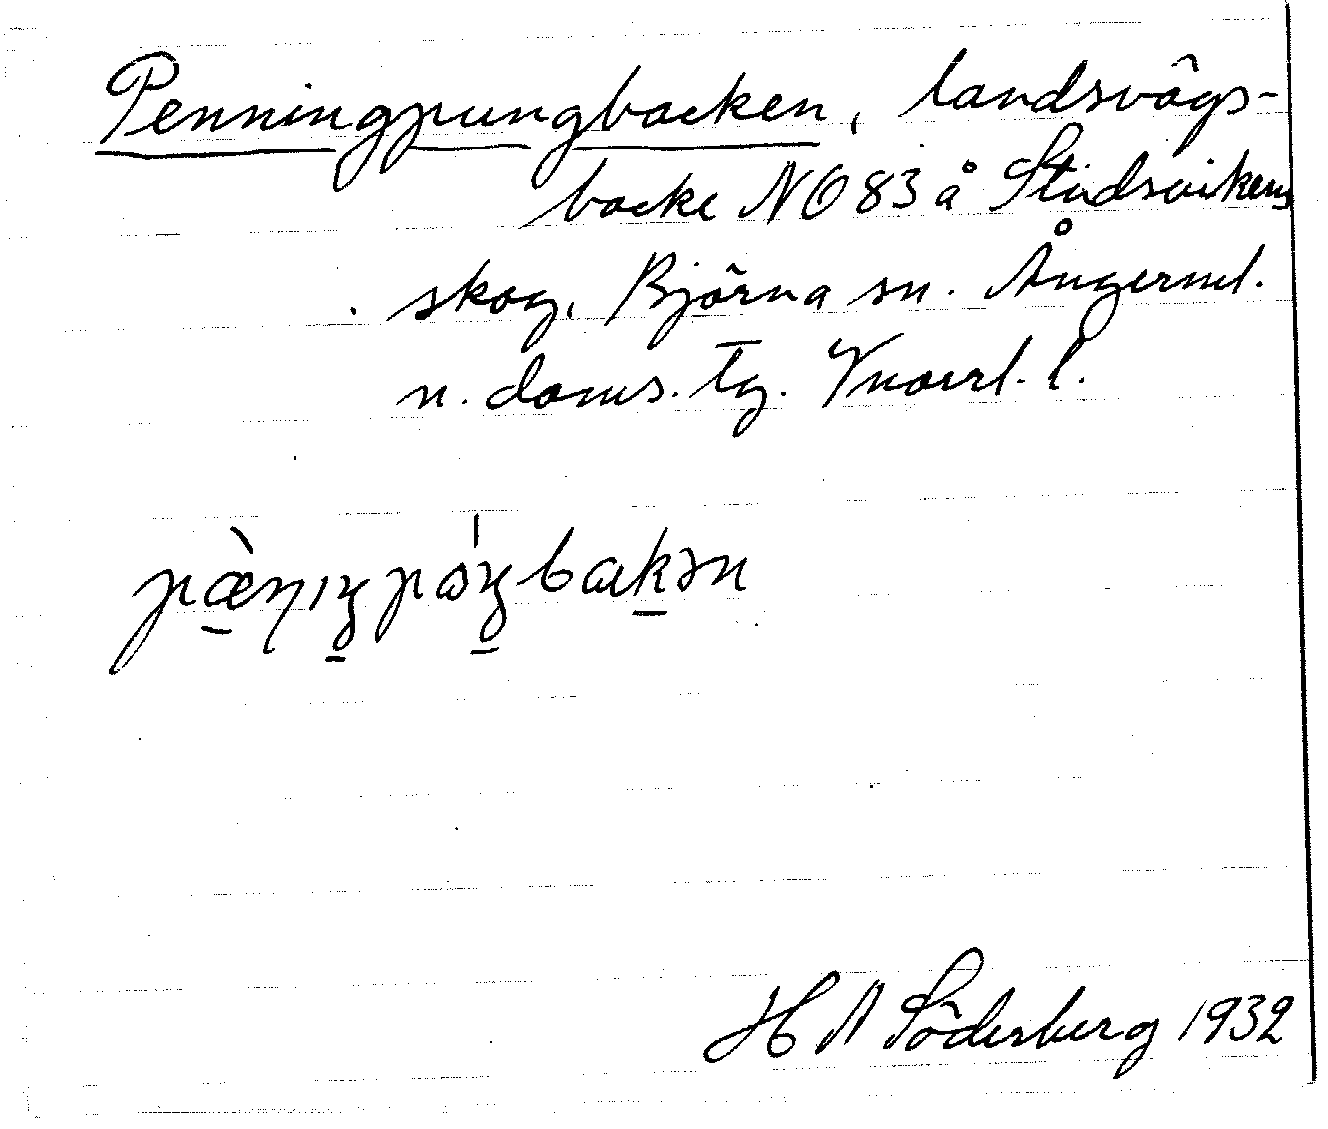 Penningpungbacken, landsvägs-
backe NO 83 å Studsvikens
skog, Björna sn. Ångerml.
n. doms. Tg. Vnorrl. l.
pæ̀nıŋpɷ́ŋbakən
H A Söderberg 1932